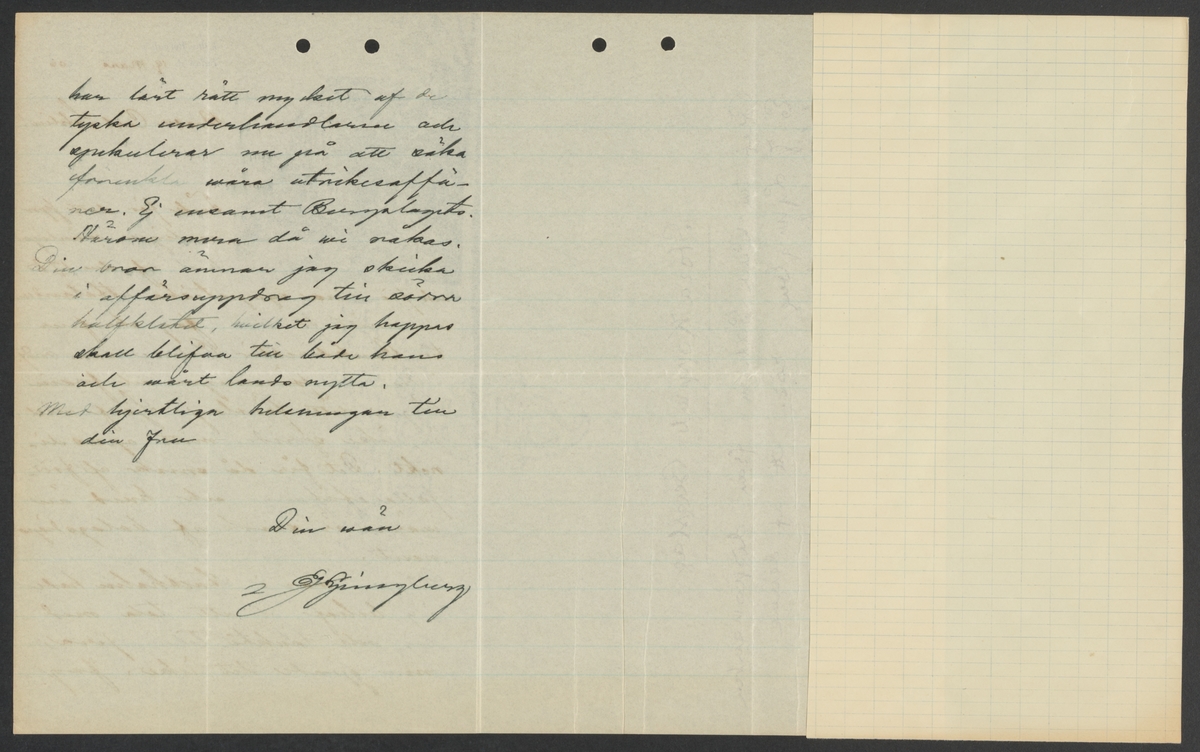 har lärt rätt mycket af de
tyska underhandlarne och
spekulerar nu på att söka
förenkla våra utrikesaffä-
rer. Ej ensamt Bergslagets.
Härom mera då vi råkas.
Din bror ämnar jag skicka
i affärsuppdrag till södra
halfklotet, hvilket jag hoppas
skall blifva till både hans
och vårt lands nytta.
Med hjertliga helsningar till
din Fru
Din vän
Ljungberg